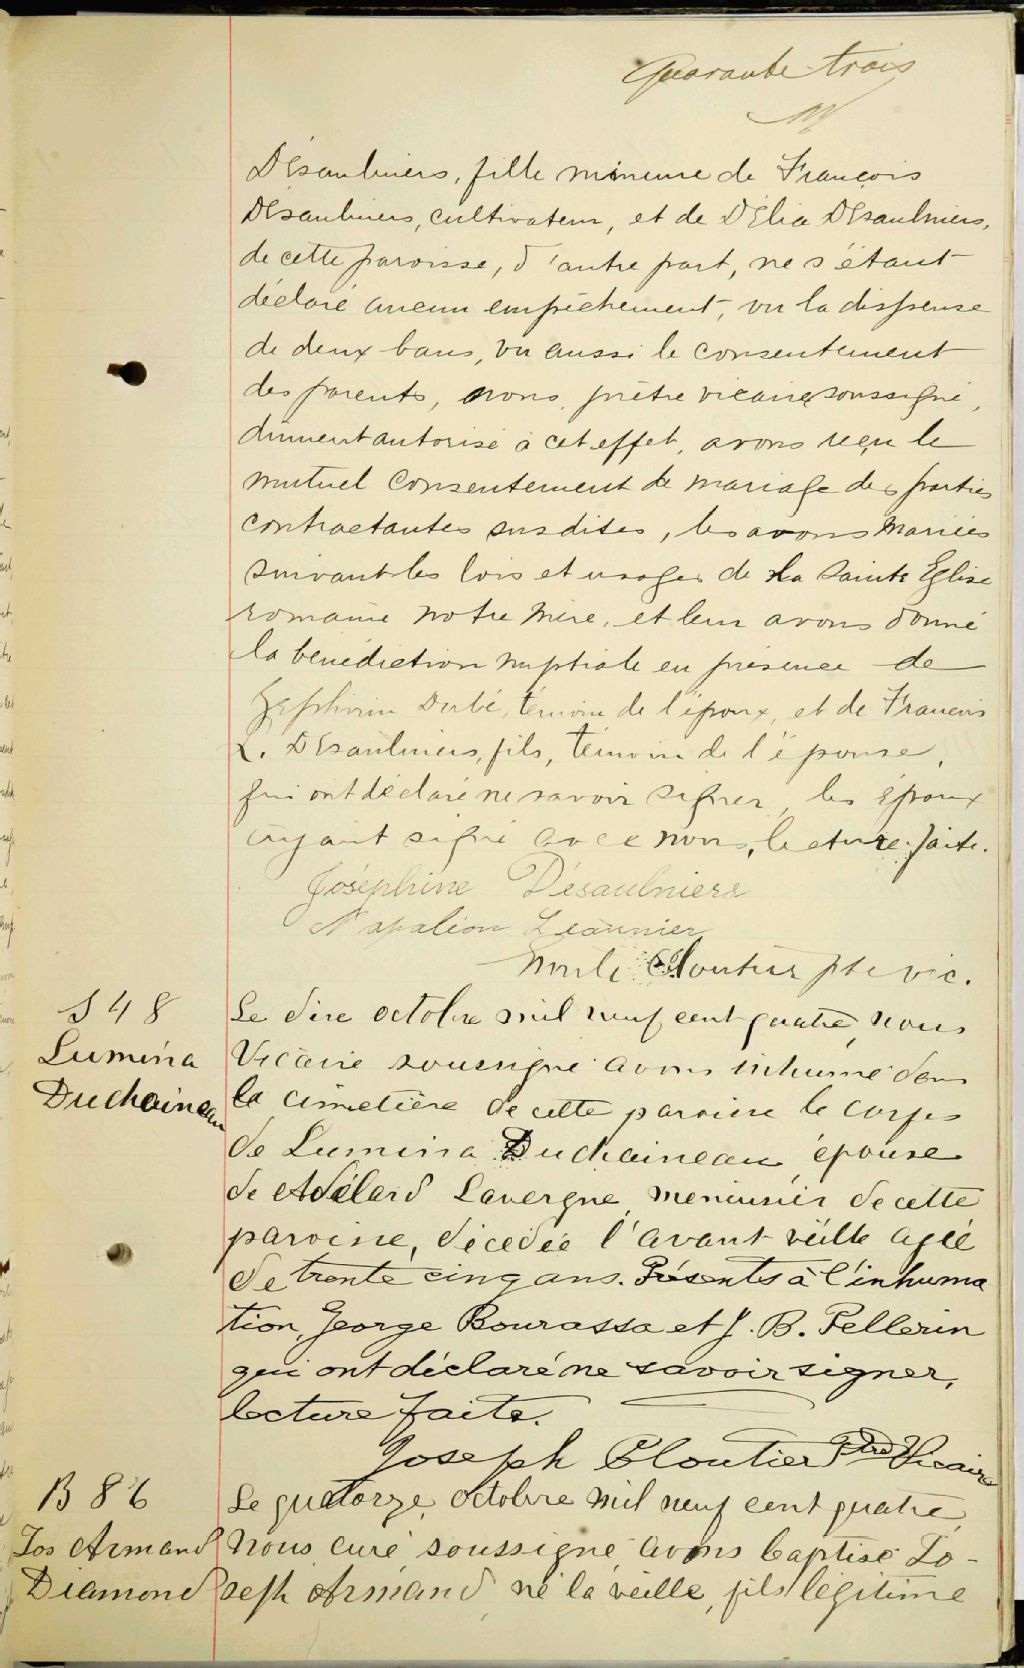 Quarante trois
Désaulniers, fille mineure de François
Désaulniers, cultivateur, et de Délia Désaulniers,
de cette paroisse, d'autre part, ne s'étant
déclaré aucun empêchement, vu la dispense
de deux bans, vu aussi le consentement
des parents, nous, prêtre vicaire soussigné,
dûment autorisé à cet effet, avons reçu le
mutuel consentement de mariage des parties
contractantes susdites, les avons mariées
suivant les lois et usages de la Sainte Eglise
romaine notre mère, et leur avons donné
la bénédiction nuptiale en présence de
Zéphirin Dubé, témoin de l'époux, et de François
L. Désaulniers, fils, témoin de l'épouse,
qui ont déclaré ne savoir signer, les époux
ayant signé avec nous, lecture faite.
Joséphine Désaulniers
Napaléon Lesaunier
Cloutier ptre vic.
S 48
Lumina
Duchaineau
Le dix octobre mil neuf cent quatre, nous
Vicaire soussigné avons inhumé dans
le cimetière de cette paroisse le corps
de Lumina Duchaineau, épouse
de Adélard Lavergne, menuisier de cette
paroisse, décédée l'avant veille agée
de trente cinq ans. Présents à l'inhuma
tion, George Bourassa et J. B. Pellerin
qui ont déclaré ne savoir signer,
lecture faite.
Joseph Cloutier Ptre Vicaire
B 86
Jos Armand
Diamond
Le quatorze octobre mil neuf cent quatre,
Nous curé soussigné avons baptisé Jo-
seph Armand, né la veille, fils légitime